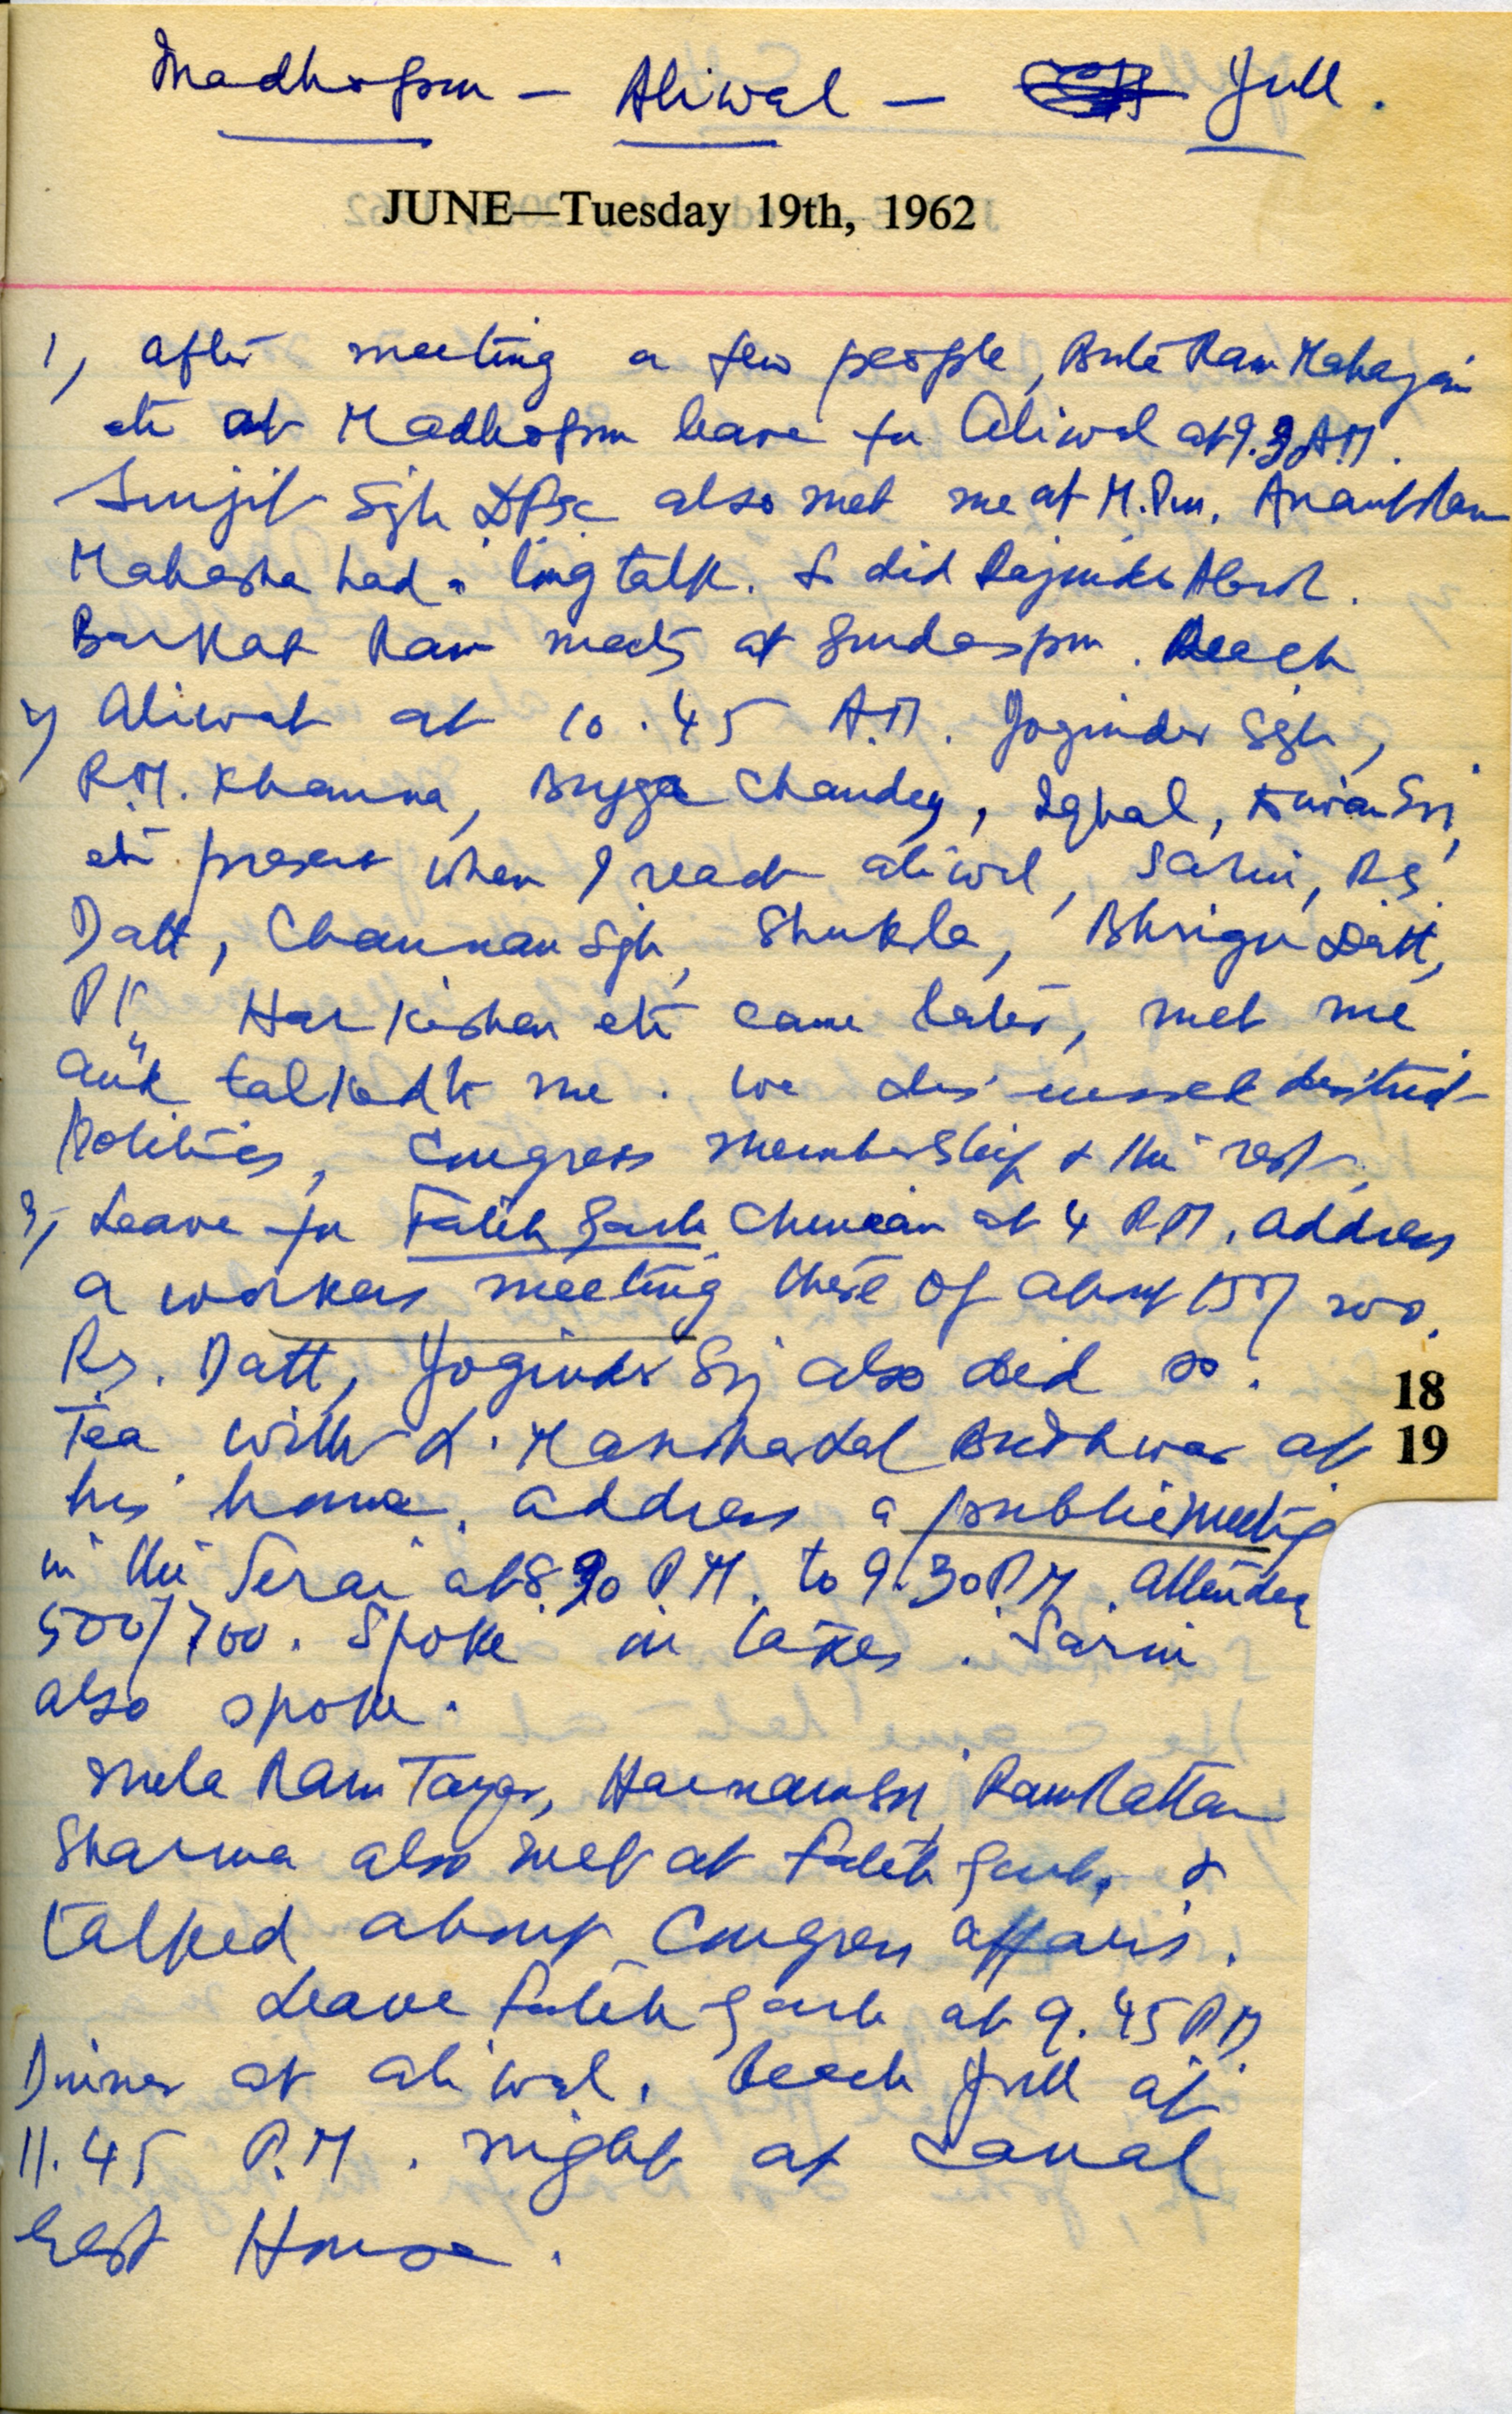 Madhopur — Aliwal — Jull.
JUNE—Tuesday 19th, 1962
1) After meeting a few people, Ram Mahajan
etc at Madhopur leave for Aliwal at 9. A.M.
Surjit Sgh also met me at M.Pur. Anant Ram
Mahasha had a long talk. So did Rajinder Abrol.
Barkat Ram meets at Gurdaspur. Reach
2) Aliwal at 10.45 A.M. Joginder Sgh,
R.M. Khanna, Chandeq, Iqbal,
etc present when I reach Aliwal, Sarin, R.S.
Datt, Channan Sgh, Shukla, Bhrigu Datt,
Har Kishan etc came later, met me
and talked to me. We discussed district
Politics, Congress membership & the rest.
3) Leave for Fateh Garh Churian at 4 P.M. address
a workers meeting there of about 150/200.
R.S. Datt, Joginder Sgh also did so.
Tea with L. Manohar Lal Budhwar at
his house. address a public meeting
in the Serai at 8.30 P.M. to 9.30 P.M. Attended
500/700. Spoke on taxes. Sarin
also spoke.
Mela Ram Tayar, Harnam Sgh, Ram Rattan
Sharma also met at Fateh Garh, &
talked about Congress affairs.
Leave Fateh Garh at 9.45 P.M.
Dinner at Aliwal. Reach Jull at
11.45 P.M. night at Canal
Rest House.
18
19